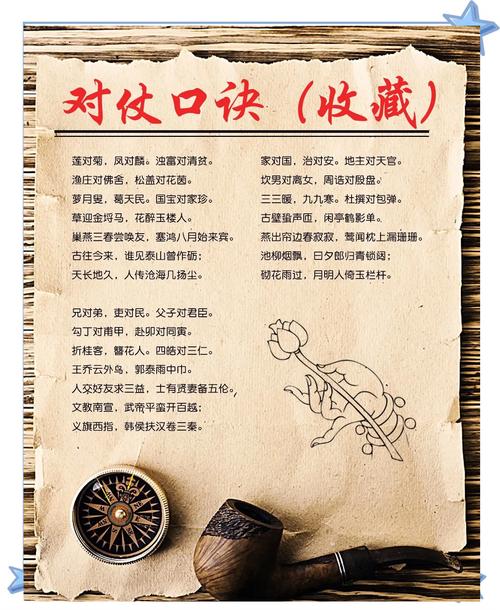 对仗口诀（收藏）
莲对菊，凤对麟。浊富对清贫。
渔庄对佛舍，松盖对花茵。
萝月叟，葛天民。国宝对家珍。
草迎金埒马，花醉玉楼人。
巢燕三春尝唤友，塞鸿八月始来宾。
古往今来，谁见泰山曾作砺；
天长地久，人传沧海几扬尘。
兄对弟，吏对民。父子对君臣。
勾丁对甫甲，赴卯对同寅。
折桂客，簪花人。四皓对三仁。
王乔云外舄，郭泰雨中巾。
人交好友求三益，士有贤妻备五伦。
文教南宣，武帝平蛮开百越；
义旗西指，韩侯扶汉卷三秦。
家对国，治对安。地主对天官。
坎男对离女，周诰对殷盘。
三三暖，九九寒。杜撰对包弹。
古壁蛩声匝，闲亭鹤影单。
燕出帘边春寂寂，莺闻枕上漏珊珊。
池柳烟飘，日夕郎归青锁闼；
砌花雨过，月明人倚玉栏杆。